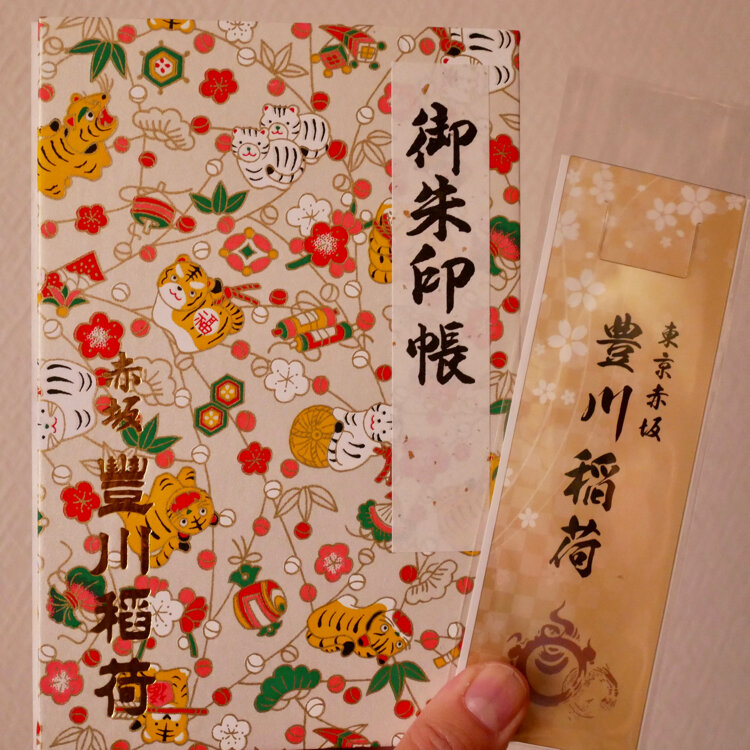 御朱印帳
赤坂
豐川稲荷
東京赤坂
豊川稲荷
福